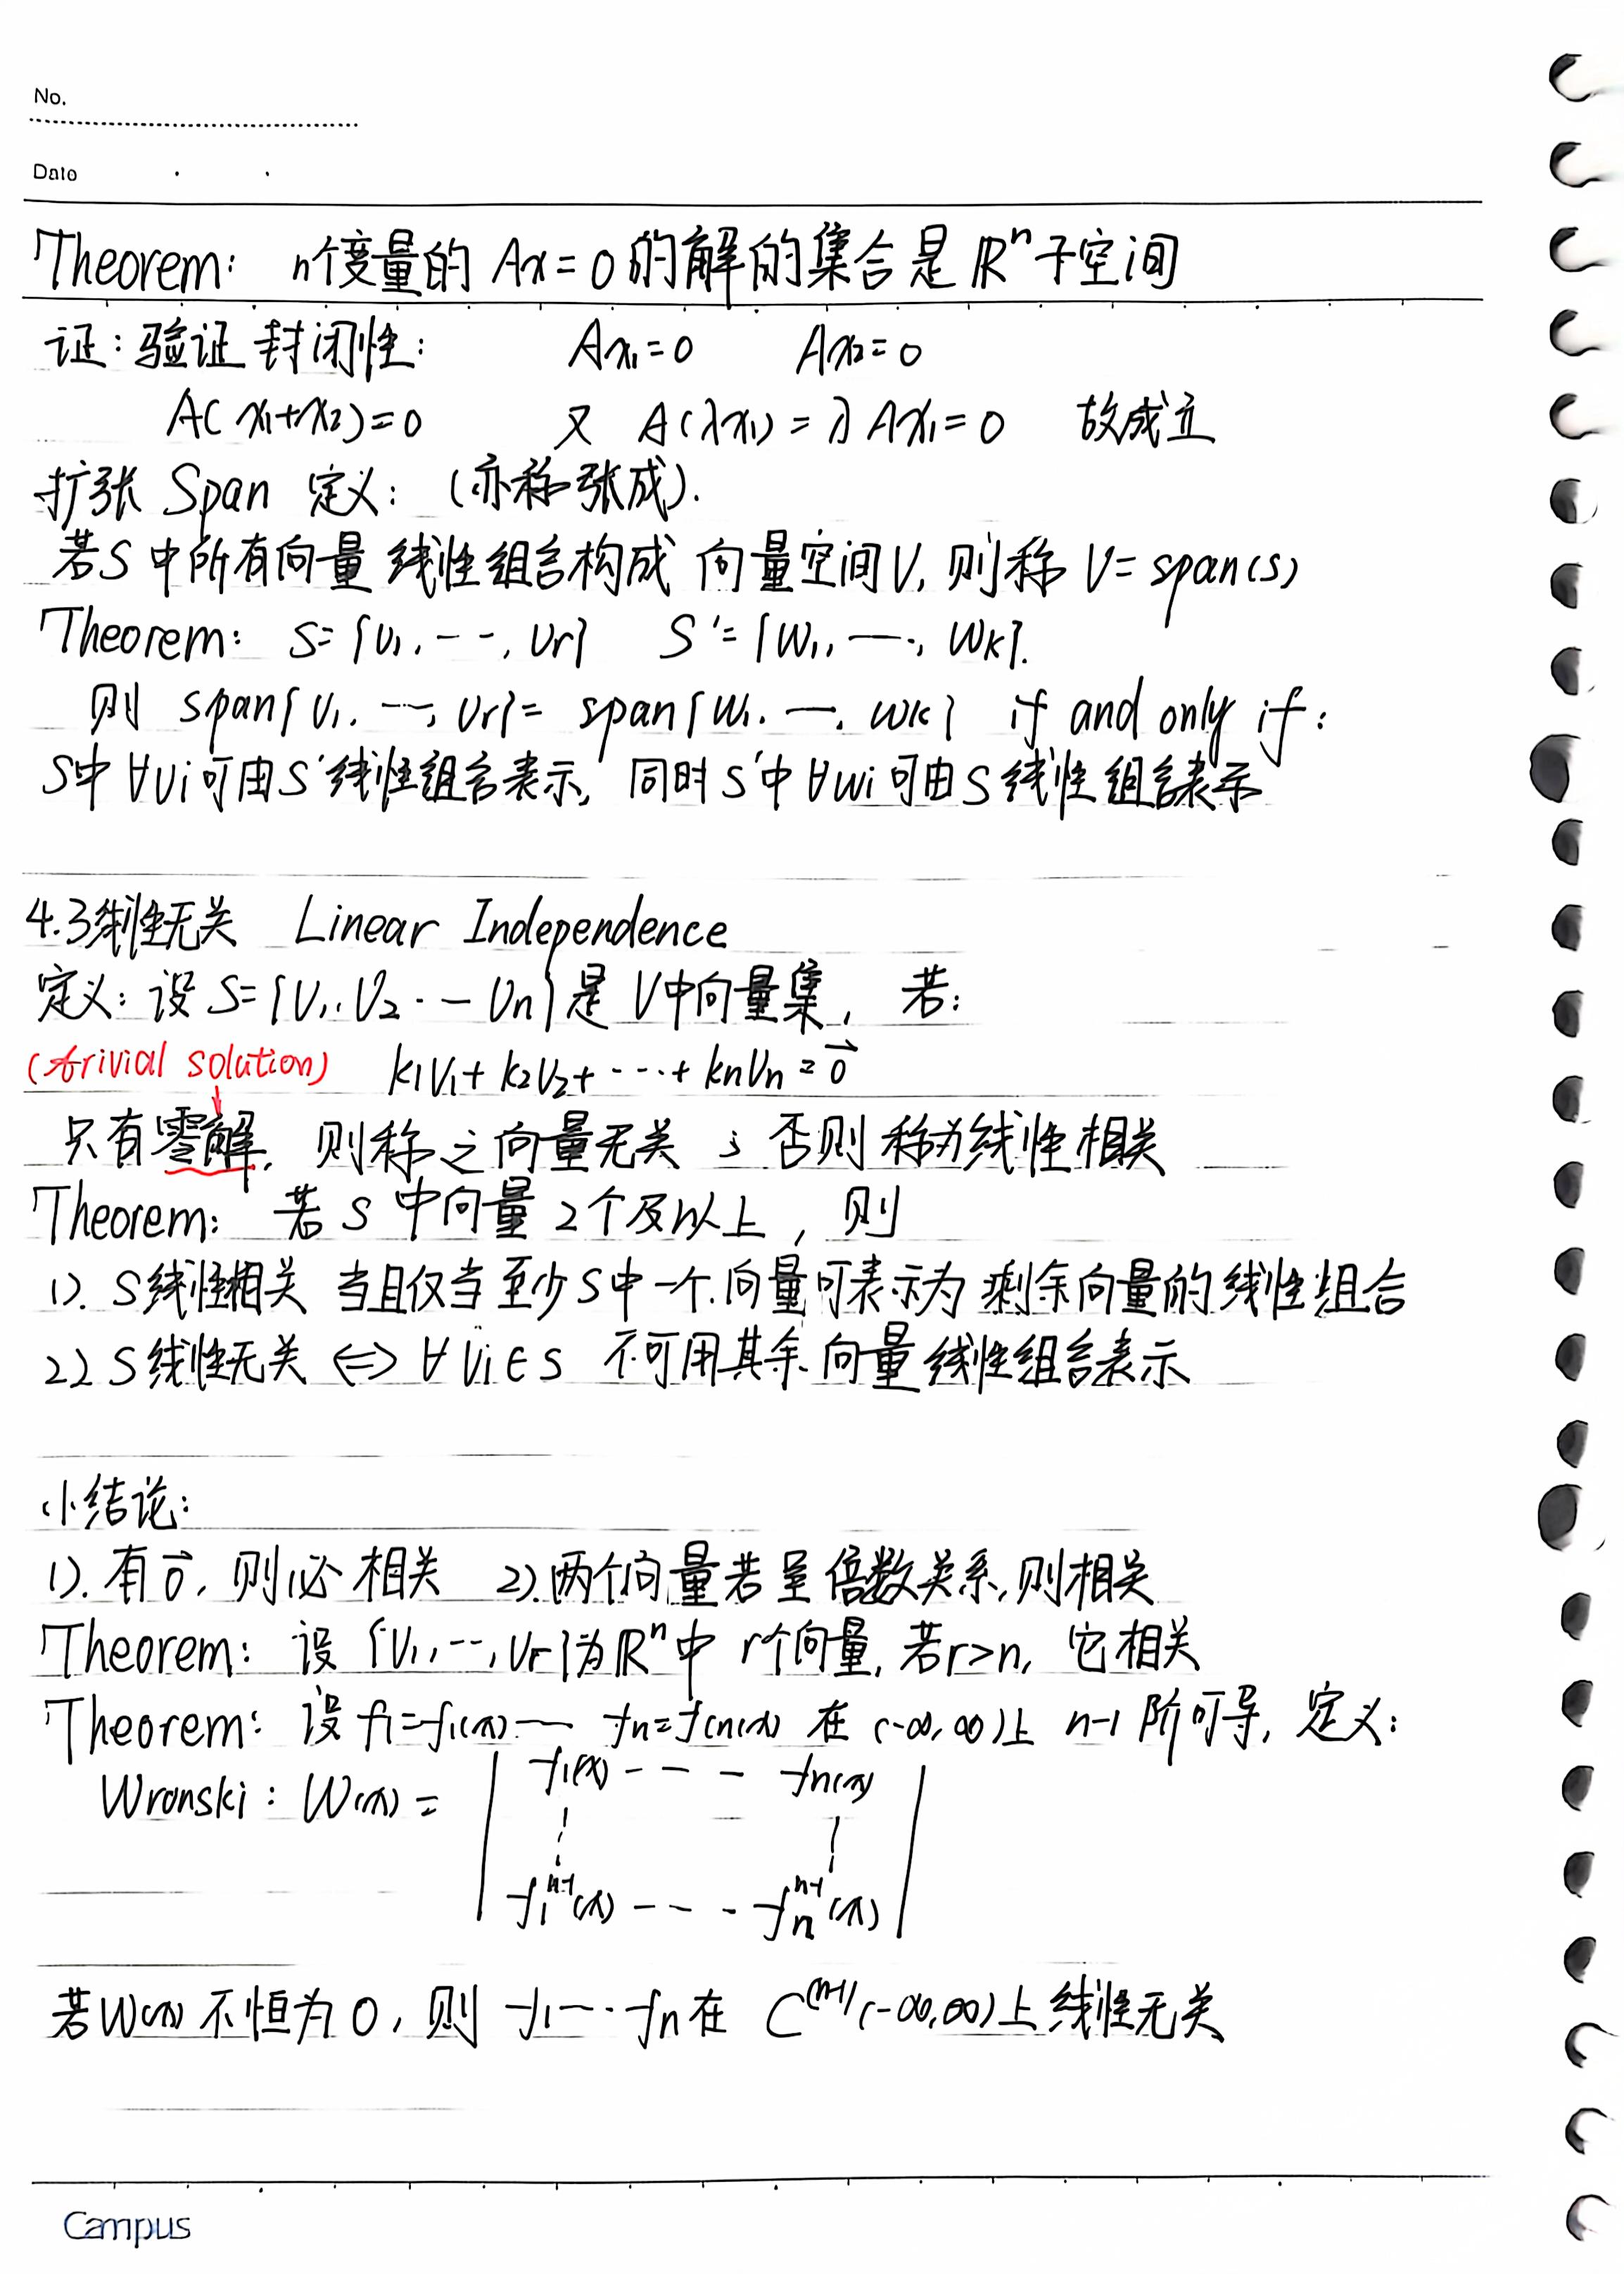 No.
Date
Theorem: n个变量的 Ax=0的解的集合是 ℝⁿ子空间
证:验证封闭性: Ax₁=0 Ax₂=0
A(x₁+x₂)=0 又 A(λx₁)=λAx₁=0 故成立
扩张 Span 定义: (亦称张成).
若S中所有向量线性组合构成 向量空间V, 则称 V=span(S)
Theorem: S={v₁, ---, vr} S'={w₁, —, wk}.
则 span{v₁, ---, vr}=span{w₁, —, wk} if and only if:
S中∀vi可由S'线性组合表示, 同时S'中∀wi可由S线性组合表示
4.3线性无关 Linear Independence
定义: 设 S={v₁, v₂ ·-- vn}是V中向量集, 若:
(trivial solution) k₁v₁+k₂v₂+····+knvn=0⃗
只有零解, 则称之向量无关; 否则称为线性相关
Theorem: 若S中向量2个及以上, 则
1). S线性相关 当且仅当 至少S中一个向量可表示为 剩余向量的线性组合
2) S线性无关 ⇔ ∀vi∈S 不可用其余向量线性组合表示
小结论:
1). 有0⃗, 则必相关 2).两个向量若呈倍数关系,则相关
Theorem: 设 {v₁, --, vr}为ℝⁿ中 r个向量, 若r>n, 它相关
Theorem: 设f₁=f₁(x)— fn=fn(x) 在(-∞,∞)上 n-1阶可导, 定义:
f₁(x) - - - fn(x)
Wronski: W(x)=
f₁ⁿ⁻¹(x) - - - fnⁿ⁻¹(x)
若W(x)不恒为0, 则 f₁—··fn在 C⁽ⁿ⁻¹⁾(-∞,∞)上线性无关
Campus